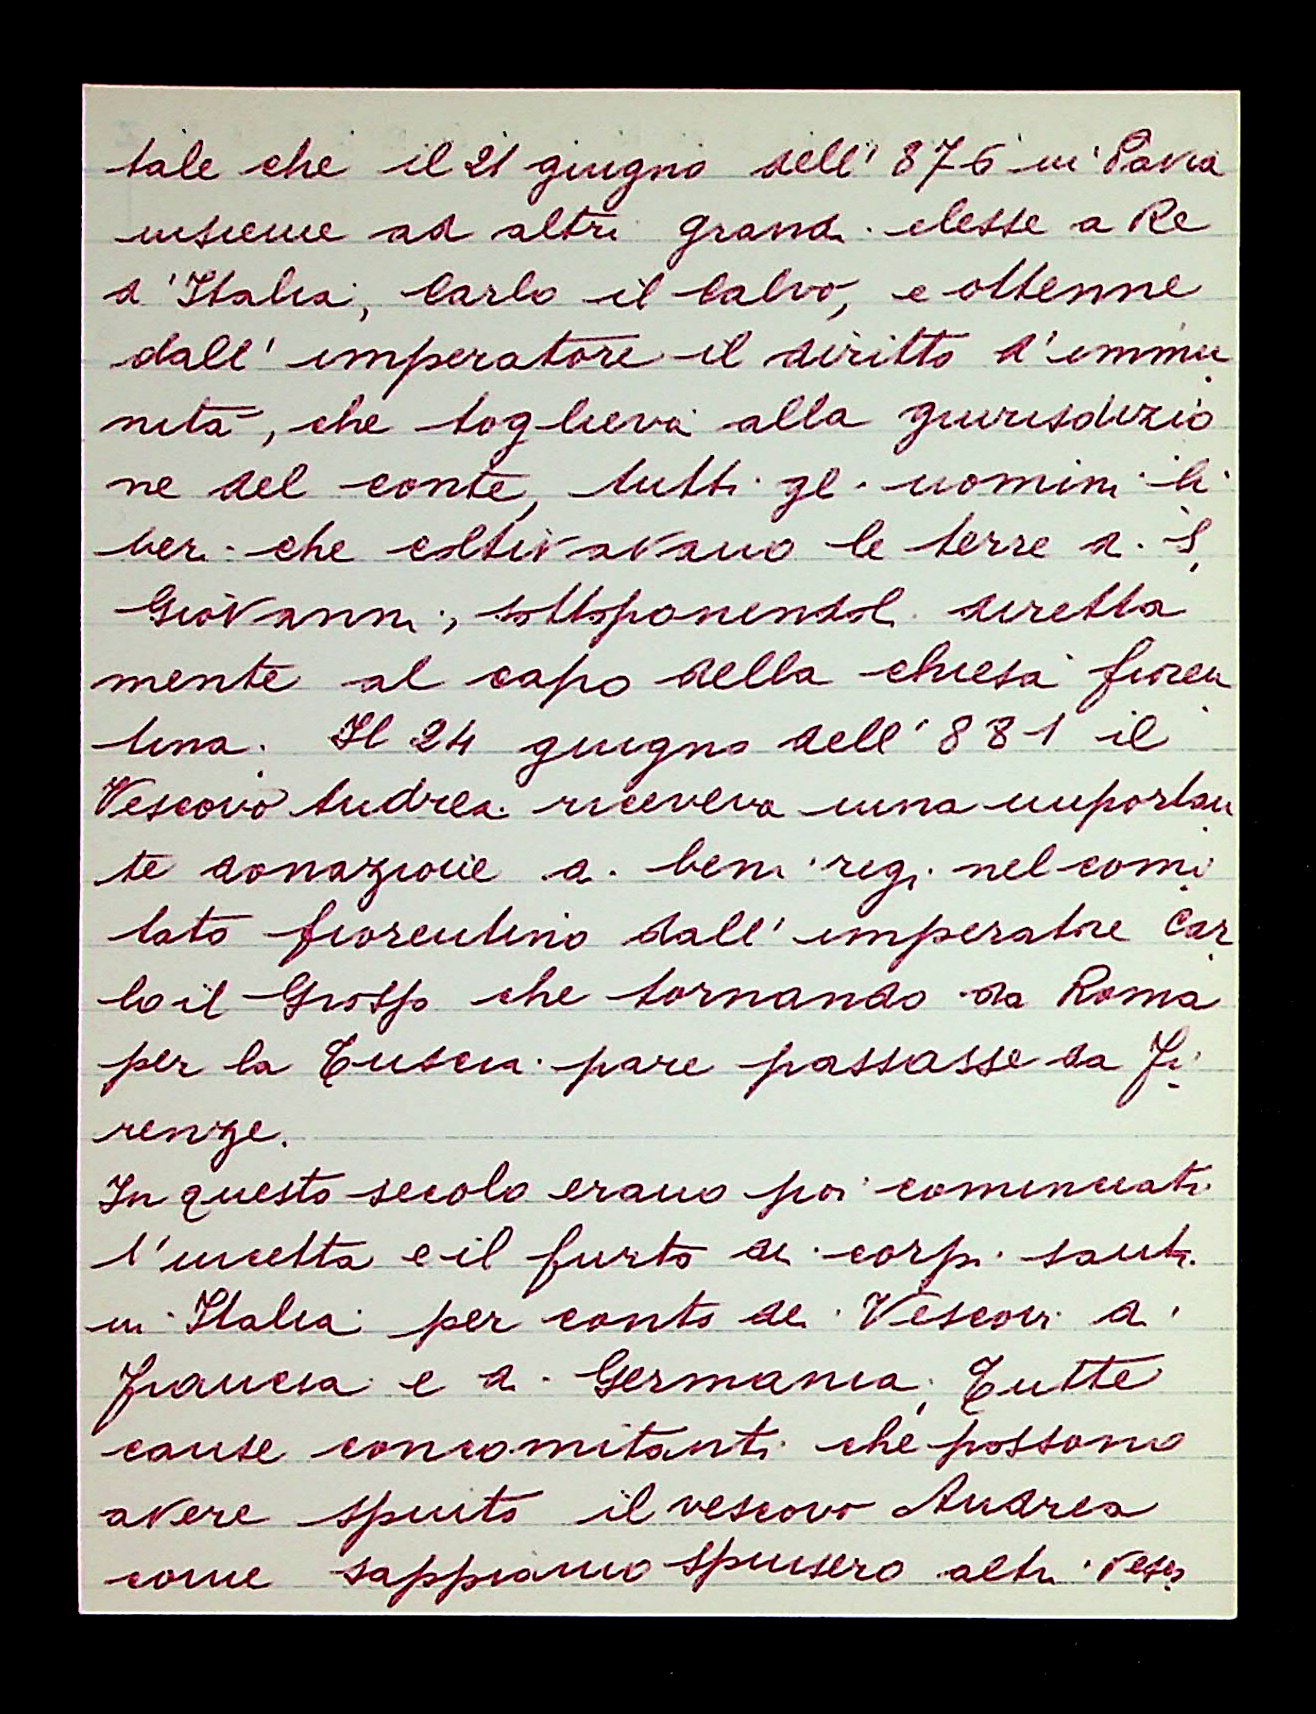 tale che il 21 giugno dell' 876 in Pavia
insieme ad altri grandi elesse a Re
d'Italia, Carlo il Calvo, e ottenne
dall' imperatore il diritto d'immu
nità, che toglieva alla giurisdizio
ne del conte, tutti gli uomini li
beri che coltivavano le terre di S.
Giovanni, sottoponendoli diretta
mente al capo della chiesa fioren
tina. Il 24 giugno dell' 881 il
Vescovo Andrea riceveva una importan
te donazione di beni regi nel comi
tato fiorentino dall' imperatore Car
lo il Grosso che tornando da Roma
per la Tuscia pare passasse da Fi
renze.
In questo secolo erano poi cominciati
l'incetta e il furto di corpi santi
in Italia per conto dei Vescovi di
Francia e di Germania, Tutte
cause concomitanti che possono
avere spinto il vescovo Andrea
come sappiamo spinsero altri